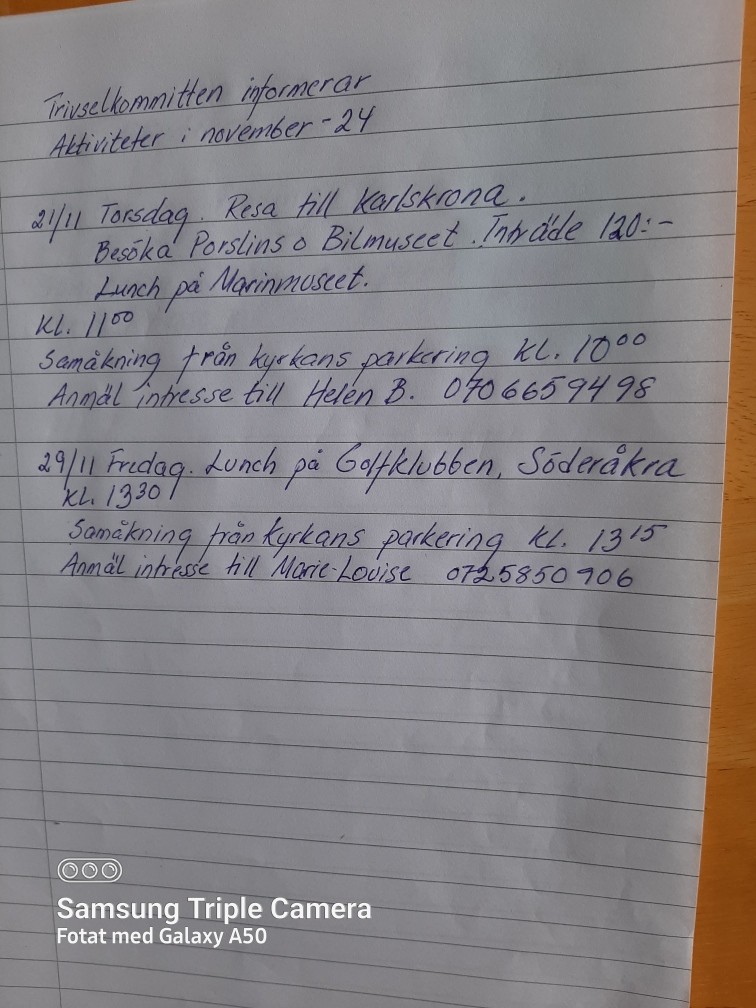 Trivselkommitten informerar
Aktiviteter i november -24
21/11 Torsdag. Resa till Karlskrona.
Besöka Porslins o Bilmuseet. Inträde 120:-
Lunch på Marinmuseet.
Kl. 11⁰⁰
Samåkning från kyrkans parkering kl. 10⁰⁰
Anmäl intresse till Helen B. 0706659498
29/11 Fredag. Lunch på Golfklubben, Söderåkra
kl. 13³⁰
Samåkning från kyrkans parkering kl. 13¹⁵
Anmäl intresse till Marie-Lovise 0725850906
Samsung Triple Camera
Fotat med Galaxy A50